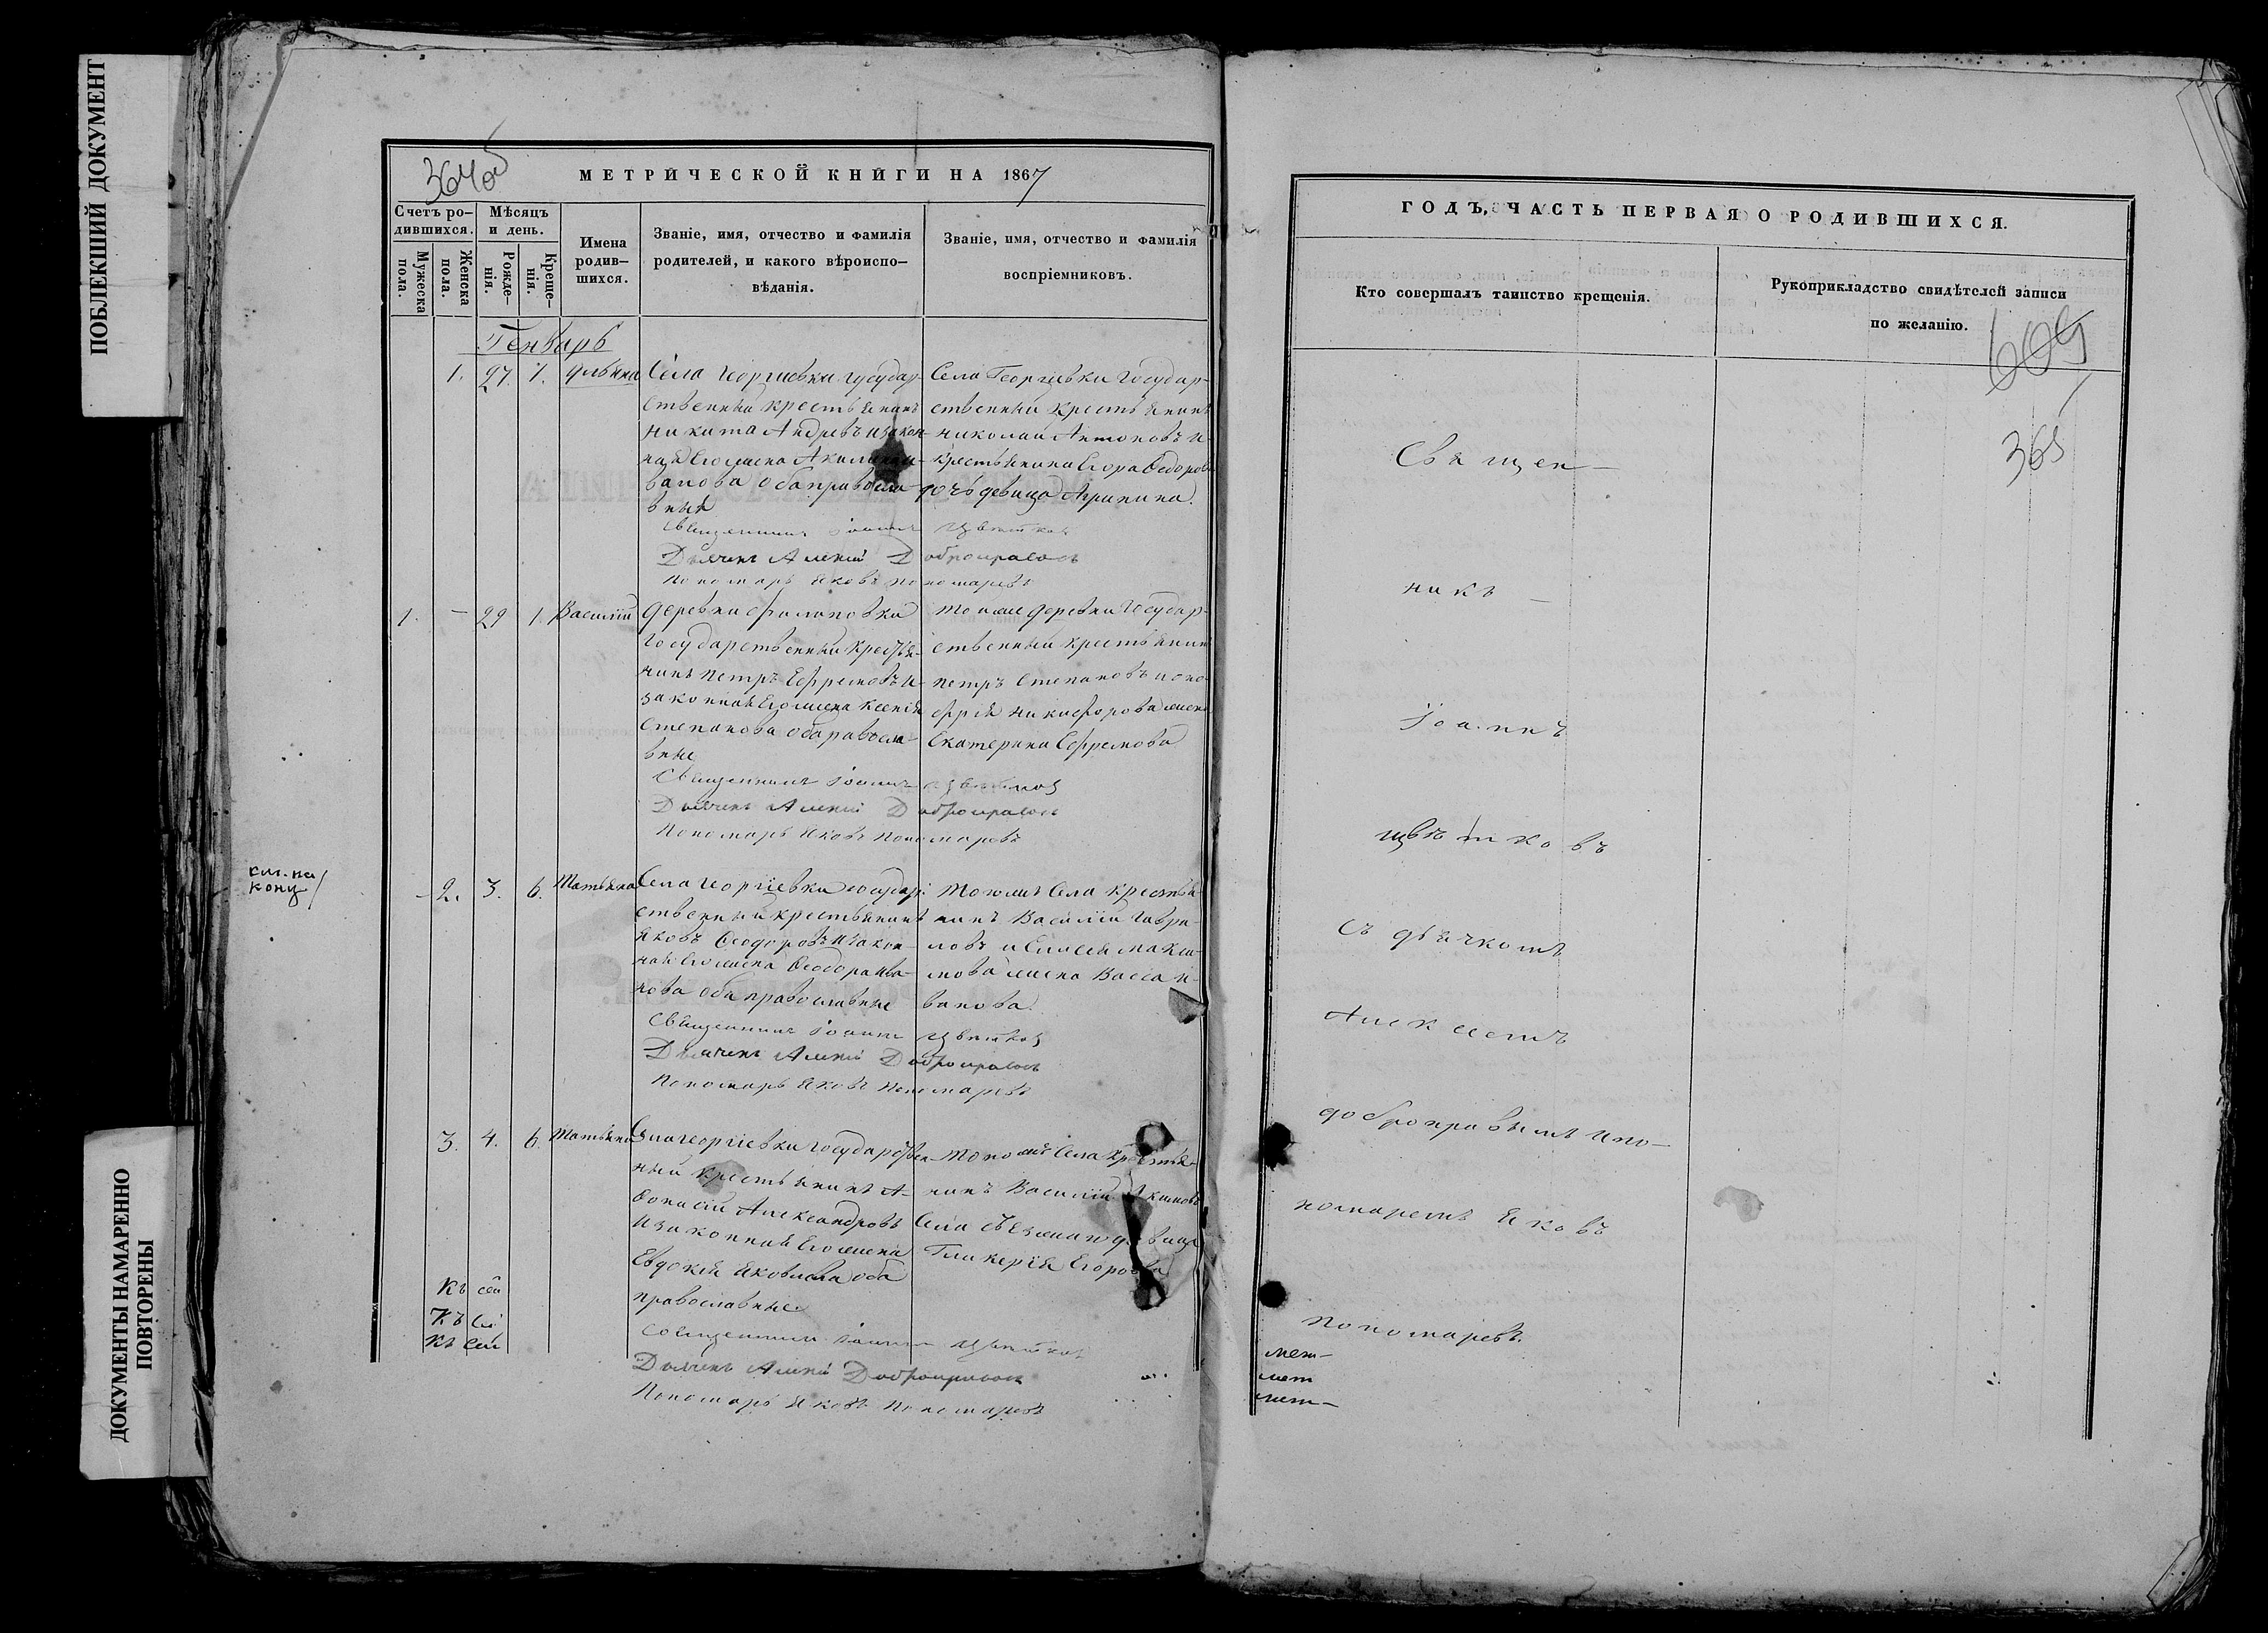 ПОБЛЕКШИЙ ДОКУМЕНТ
ДОКУМЕНТЫ НАМАРЕННО
ПОВТОРЕНЫ
364об
МЕТРИЧЕСКОЙ КНИГИ НА 1867
Счетъ ро-
дившихся.
Мужеска
пола.
Женска
пола.
Мѣсяцъ
и день.
Рожде-
нія.
Креще-
нія.
Имена
родив-
шихся.
Званіе, имя, отчество и фамилія
родителей, и какого вѣроиспо-
вѣданія.
Званіе, имя, отчество и фамилія
воспріемниковъ.
Генварь
1. 27. 1.
Села Георгіевки государ-
ственный крестьянинъ
Никита Андревъ и закон-
ная Его жена Акилина И-
ванова оба правосла-
вныя
Села Георгіевки Государ-
ственный крестьянинъ
Николай Антоновъ и
крестьянина Егора Ѳедоров
дочь девица Агрипина.
Священникъ Іоаннъ Цвѣтковъ
Дьячекъ Алексій Доброправовъ
Пономарь Яковъ Пономаревъ
1. — 29 1. Василій
Деревни Филиповки
Государственный Крестья-
нинъ Петръ Ефремовъ и
законная Его жена Ксенія
Степанова оба правосла
вные
Той же деревни Государ-
ственный крестьянинъ
Петръ Степановъ и
Никифорова жена
Екатерина Ефремова
Священникъ Іоаннъ Цвѣтковъ
Дьячекъ Алексій Доброправовъ
Пономарь Яковъ Пономаревъ
см. на
конц/
2. 3. 6. Татьяна
Села Георгіевки государ
ственный крестьянинъ
Яковъ Ѳеодоровъ и закон-
ная Его жена Ѳеодора Ива-
нова оба православные
Того жъ Села крестья-
нинъ Василій Гаври-
ловъ и Елисея Макси-
мова жена Васса И-
ванова.
Священникъ Іоаннъ Цвѣтковъ
Дьячекъ Алексій Доброправовъ
Пономарь Яковъ Пономаревъ
3. 4. 6. Татьяна
Села Георгіевки Государствен-
ный крестьянинъ А-
ѳонасій Александровъ
и законная Его жена
Евдокія Яковлева оба
православные
Того жъ Села крестья-
нинъ Василій Акимовъ
Села девица
Гликерія Егорова
Священникъ Іоаннъ Цвѣтковъ
Дьячекъ Алексій Доброправовъ
Пономарь Яковъ Пономаревъ
Къ сей
Къ сей
Къ сей
ГОДЪ, ЧАСТЬ ПЕРВАЯ О РОДИВШИХСЯ.
Кто совершалъ таинство крещенія.
Рукоприкладство свидѣтелей записи
по желанію.
609
365
Священ—
никъ —
Іоаннъ
Цвѣтковъ
съ дьячкомъ
Алексеемъ
Доброправвымъ и по—
номаремъ Яковъ
Пономаревъ.
мет—
мет
мет—